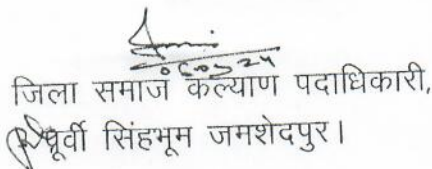 जिला समाज कल्याण पदाधिकारी,
पूर्वी सिंहभूम जमशेदपुर।